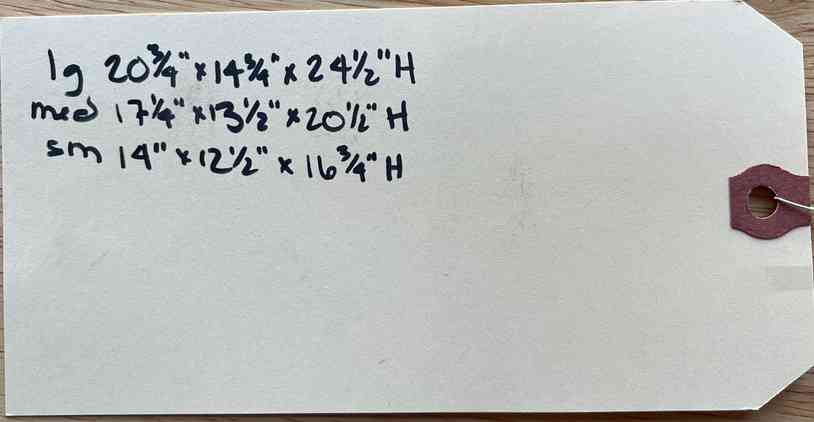 lg 20¾" x 14¾" x 24½" H
med 17¼" x 13½" x 20½" H
sm 14" x 12½" x 16¾" H